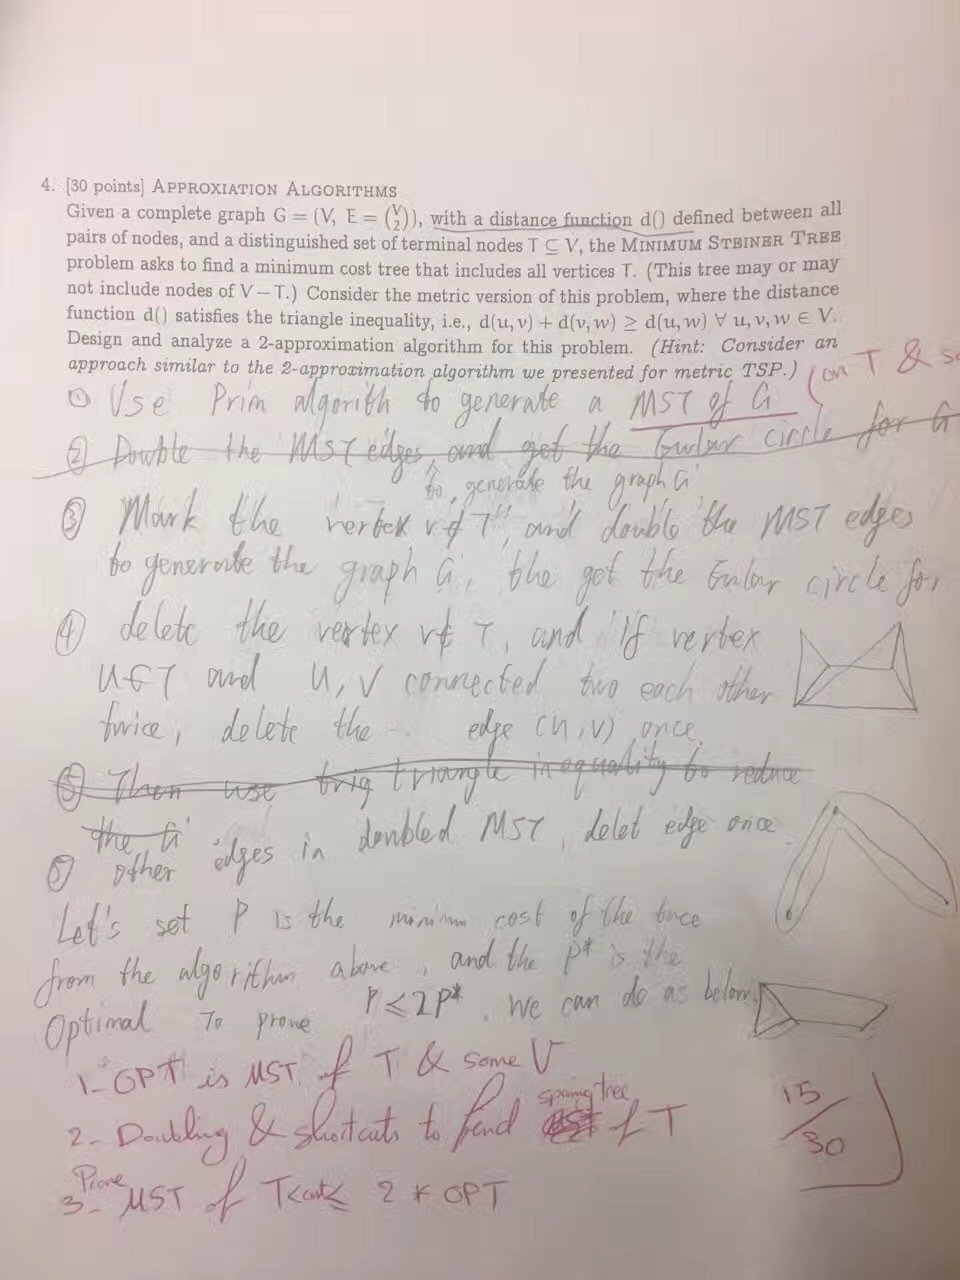 4. [30 points] APPROXIATION ALGORITHMS
Given a complete graph G = (V, E = (V 2)), with a distance function d() defined between all
pairs of nodes, and a distinguished set of terminal nodes T ⊆ V, the MINIMUM STEINER TREE
problem asks to find a minimum cost tree that includes all vertices T. (This tree may or may
not include nodes of V − T.) Consider the metric version of this problem, where the distance
function d() satisfies the triangle inequality, i.e., d(u, v) + d(v, w) ≥ d(u, w) ∀ u, v, w ∈ V.
Design and analyze a 2-approximation algorithm for this problem. (Hint: Consider an
approach similar to the 2-approximation algorithm we presented for metric TSP.)
(on T & so
① Use Prim algorith to generate a MST of G
② Double the MST edges, and get the Eurlar circle for G
to generate the graph G'
③ Mark the vertex v ∉ T, and double the MST edges
to generate the graph G', the got the Eurlar circle for
④ delete the vertex v ∉ T, and if vertex
u ∈ T and u, v connected two each other
twice, delete the edge (u, v) once.
⑤ Then use trig triangle inequality to reduce
the G'
⑤ other edges in doubled MST, delet edge once
Let's set P is the minimum cost of the
from the algorithm above, and the P* is the
Optimal To prove P ≤ 2P*. We can do as below
1- OPT is MST of T & some V
2- Doubling & shortcuts to find spaning tree of T
3- Prove MST of T < cost ≤ 2 * OPT
15/30